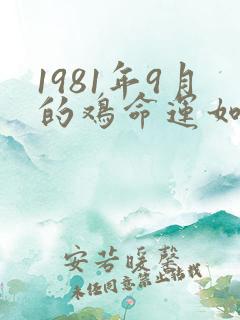 1981年9月
的鸡命运如
安若暖馨
未经同意禁止搭载